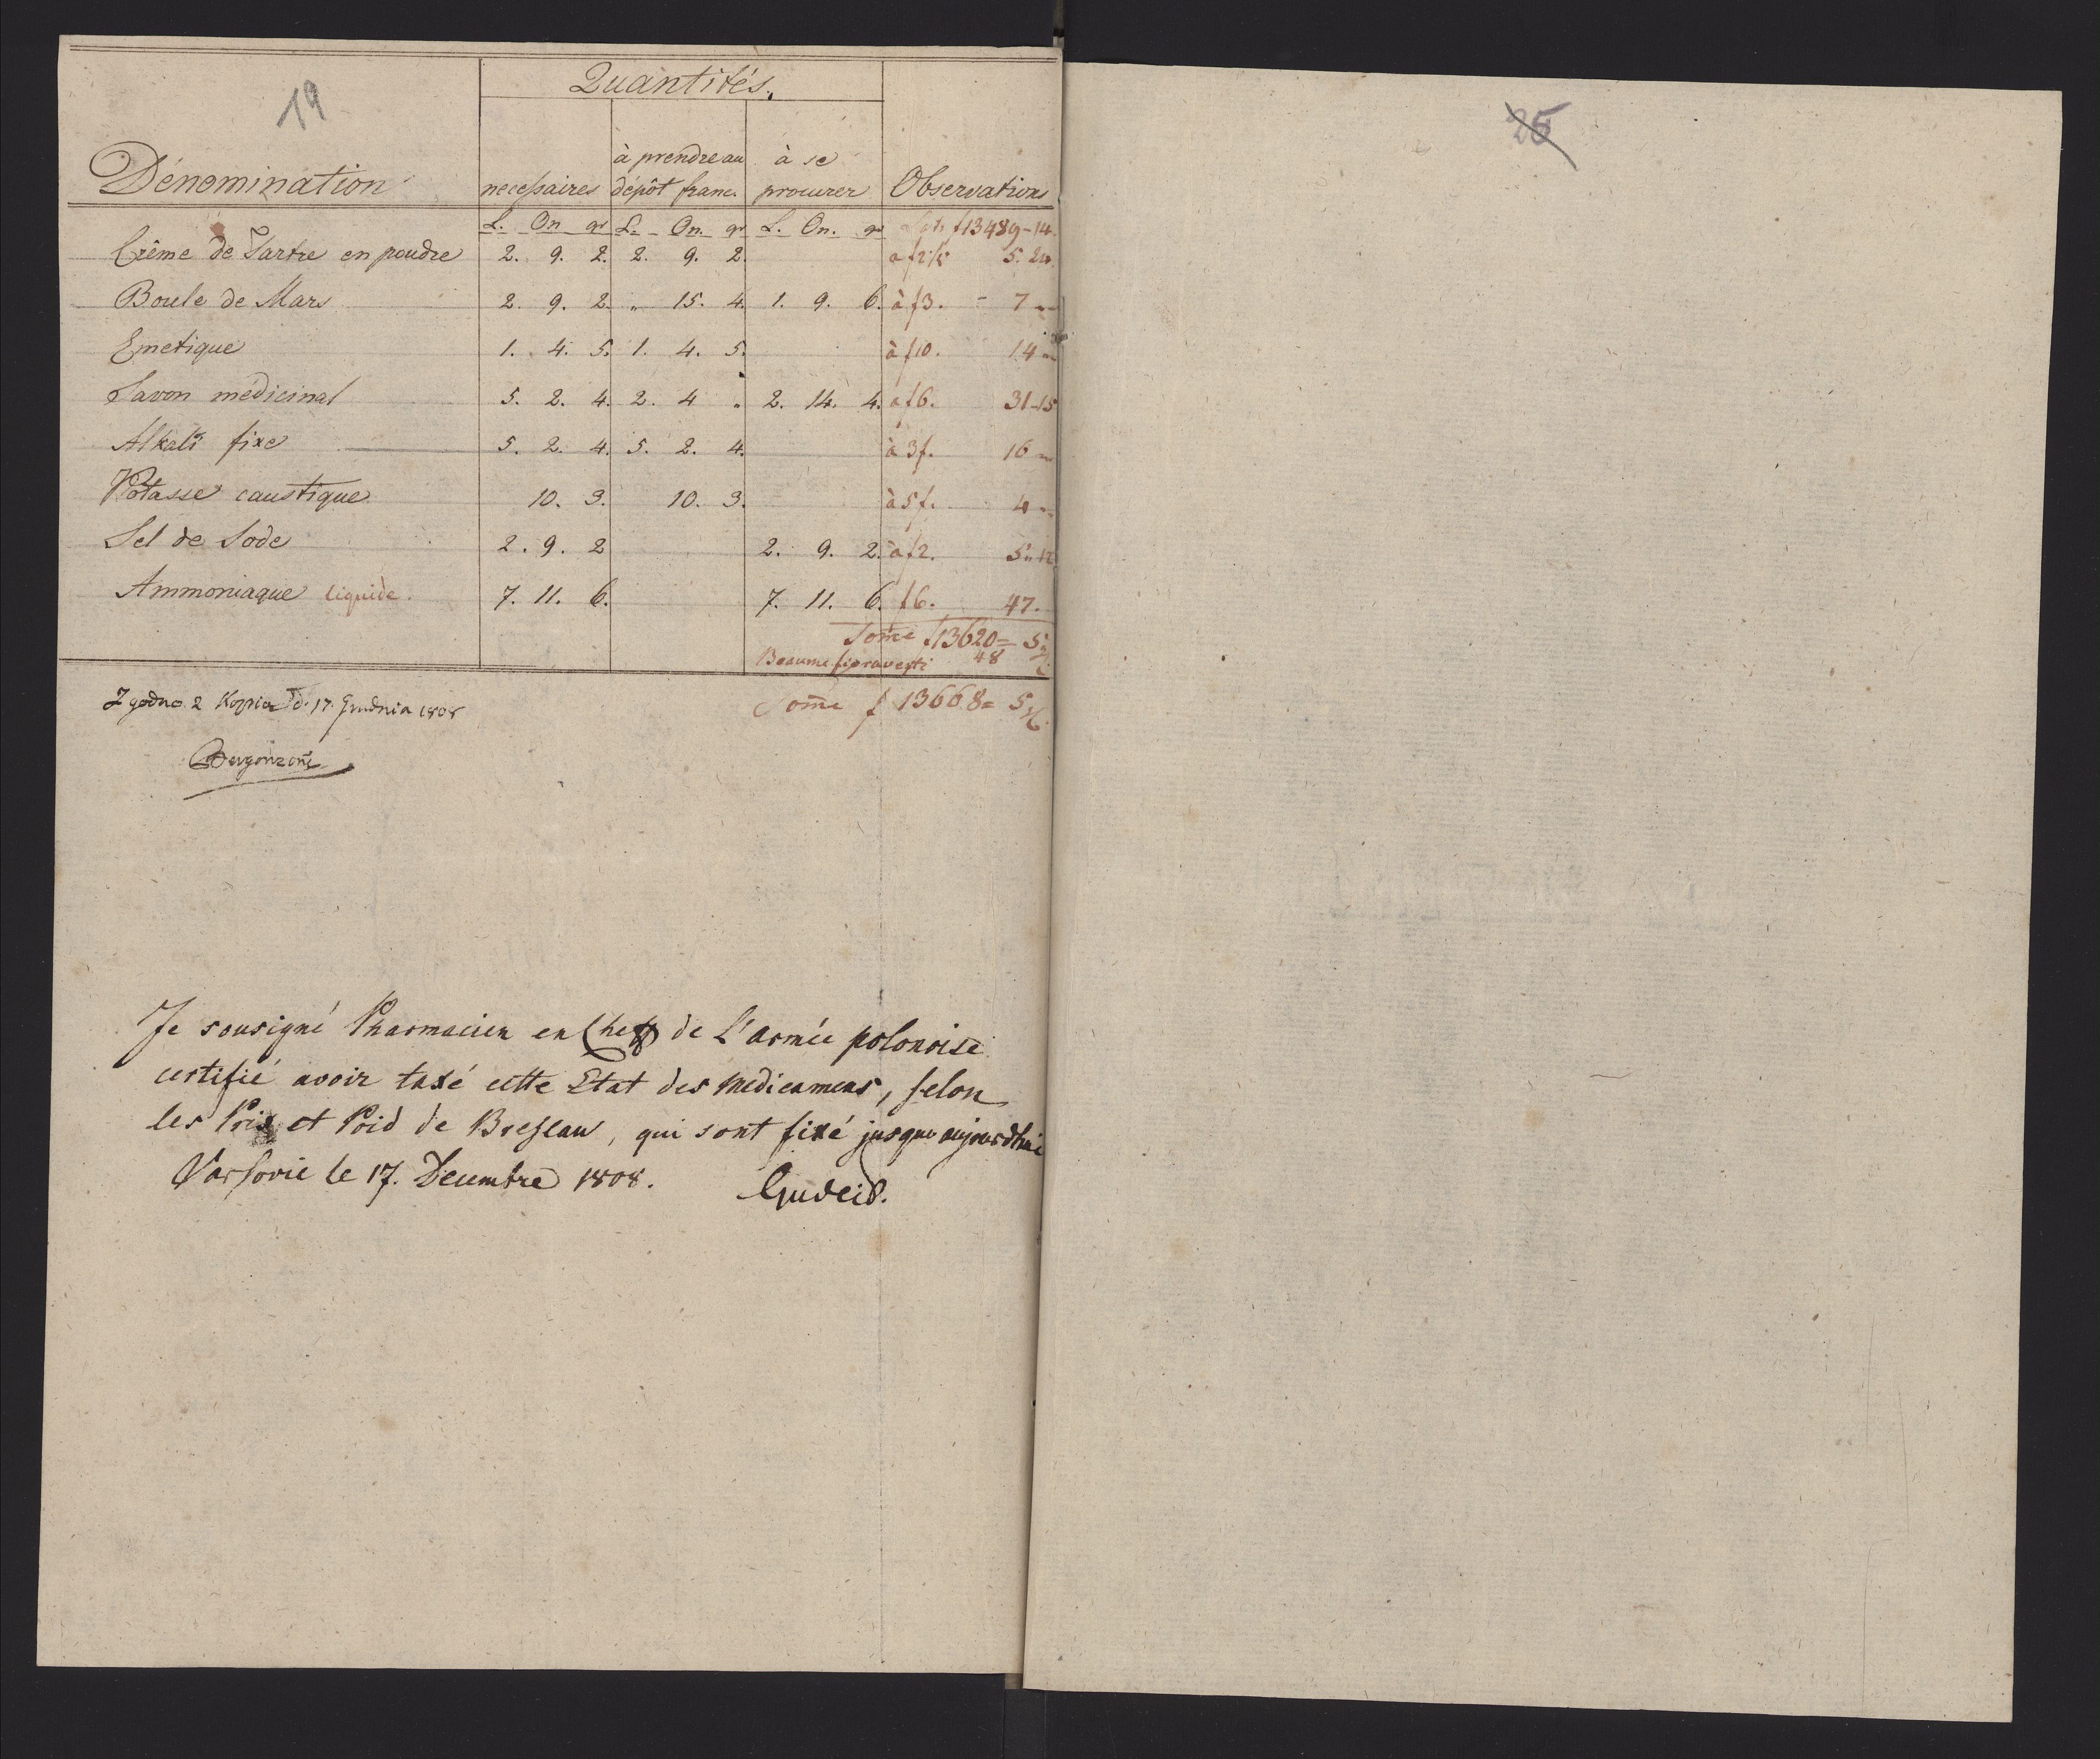 19
Quantités.
Dénomination necessaires à prendre au dépôt franc. à se procurer Observations
L. On gr L. On. gr L. On. gr f13489-14.
Crême de Tartre en poudre 2. 9. 2. 2. 9. 2.
Boule de Mars 2. 9. 2. „ 15. 4. 1. 9. 6. à f3. - 7
Emetique 1. 4. 5. 1. 4. 5. à f10. 14
Savon médicinal 5. 2. 4. 2. 4 „ 2. 14. 4. a f6. 31-15
Alkali fixe 5. 2. 4. 5. 2. 4. à 3f. 16
Potasse caustique 10. 3. 10. 3. à 5f. 4
Sel de Sode 2. 9. 2 2. 9. 2. à f2. 5
Ammoniaque liquide. 7. 11. 6. 7. 11. 6. f6. 47.
Some f13620=
Beaume 48
Some f 13668=
Zgodno z Kopią d. 17 Grudnia 1808
Je sousigné Pharmacien en Cheff de L'armée polonoise
certifié avoir taxé cette Etat des Medicamens, selon
les Prix et Poid de Breslau, qui sont fixé jusque aujourdhui
Varsovie le 17. Decembre 1808.
25